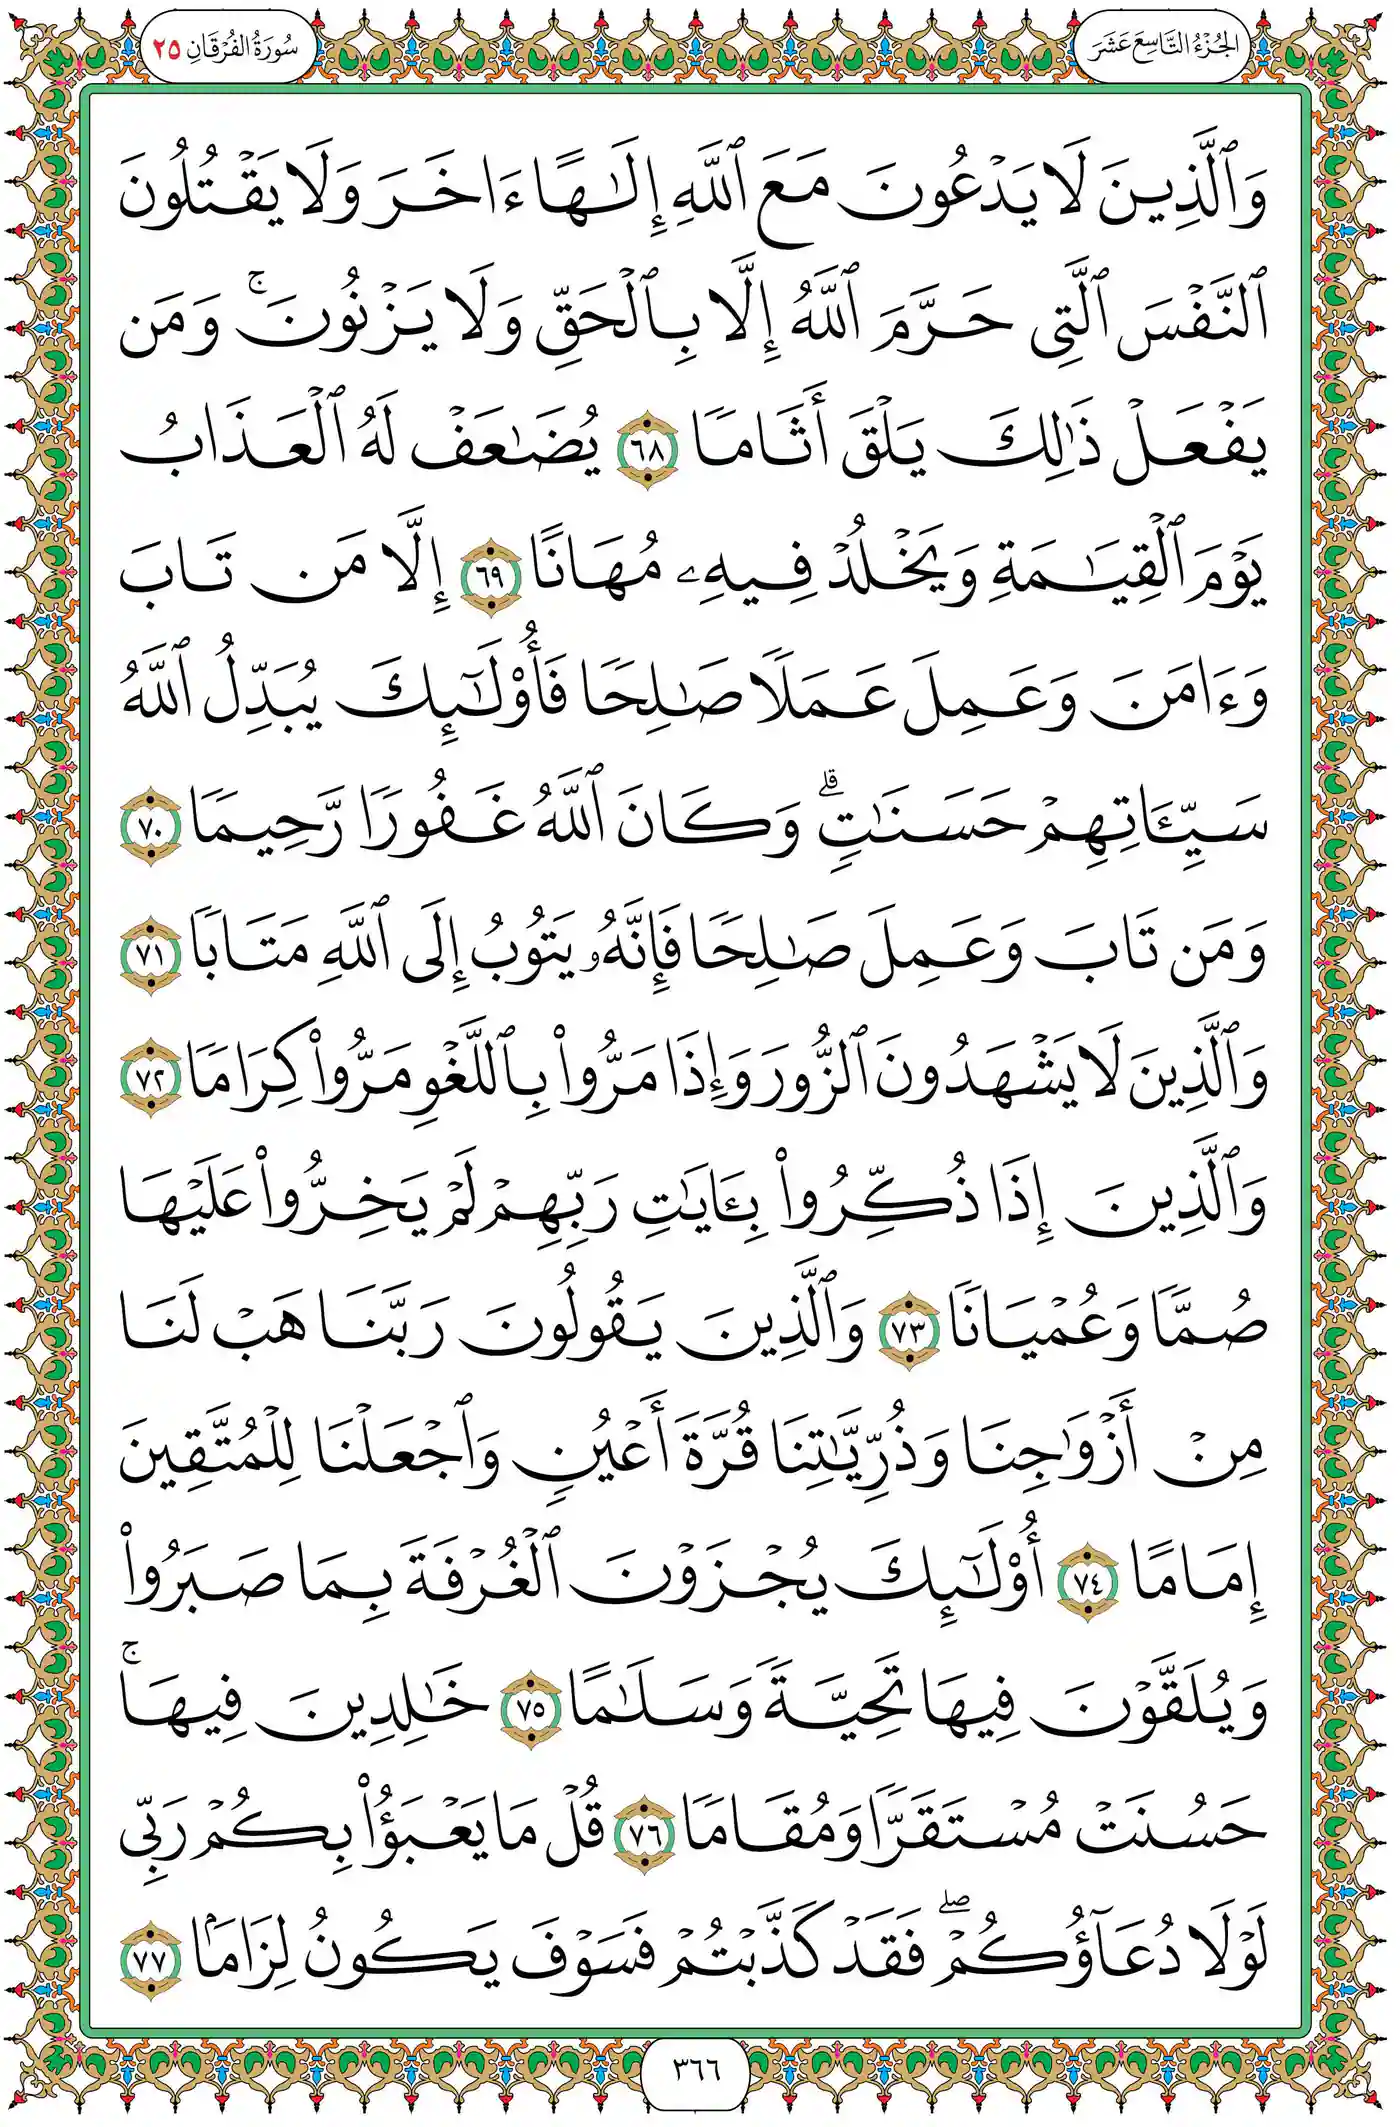 الجُزْءُ التَّاسِعَ عَشَرَ
سُورَةُ الفُرْقَانِ ٢٥
وَٱلَّذِينَ لَا يَدْعُونَ مَعَ ٱللَّهِ إِلَٰهًا ءَاخَرَ وَلَا يَقْتُلُونَ
ٱلنَّفْسَ ٱلَّتِى حَرَّمَ ٱللَّهُ إِلَّا بِٱلْحَقِّ وَلَا يَزْنُونَ ۚ وَمَن
يَفْعَلْ ذَٰلِكَ يَلْقَ أَثَامًا ٦٨ يُضَٰعَفْ لَهُ ٱلْعَذَابُ
يَوْمَ ٱلْقِيَٰمَةِ وَيَخْلُدْ فِيهِۦ مُهَانًا ٦٩ إِلَّا مَن تَابَ
وَءَامَنَ وَعَمِلَ عَمَلًا صَٰلِحًا فَأُوْلَٰٓئِكَ يُبَدِّلُ ٱللَّهُ
سَيِّـَٔاتِهِمْ حَسَنَٰتٍ ۗ وَكَانَ ٱللَّهُ غَفُورًا رَّحِيمًا ٧٠
وَمَن تَابَ وَعَمِلَ صَٰلِحًا فَإِنَّهُۥ يَتُوبُ إِلَى ٱللَّهِ مَتَابًا ٧١
وَٱلَّذِينَ لَا يَشْهَدُونَ ٱلزُّورَ وَإِذَا مَرُّوا۟ بِٱللَّغْوِ مَرُّوا۟ كِرَامًا ٧٢
وَٱلَّذِينَ إِذَا ذُكِّرُوا۟ بِـَٔايَٰتِ رَبِّهِمْ لَمْ يَخِرُّوا۟ عَلَيْهَا
صُمًّا وَعُمْيَانًا ٧٣ وَٱلَّذِينَ يَقُولُونَ رَبَّنَا هَبْ لَنَا
مِنْ أَزْوَٰجِنَا وَذُرِّيَّٰتِنَا قُرَّةَ أَعْيُنٍ وَٱجْعَلْنَا لِلْمُتَّقِينَ
إِمَامًا ٧٤ أُوْلَٰٓئِكَ يُجْزَوْنَ ٱلْغُرْفَةَ بِمَا صَبَرُوا۟
وَيُلَقَّوْنَ فِيهَا تَحِيَّةً وَسَلَٰمًا ٧٥ خَٰلِدِينَ فِيهَا ۚ
حَسُنَتْ مُسْتَقَرًّا وَمُقَامًا ٧٦ قُلْ مَا يَعْبَؤُا۟ بِكُمْ رَبِّى
لَوْلَا دُعَآؤُكُمْ ۖ فَقَدْ كَذَّبْتُمْ فَسَوْفَ يَكُونُ لِزَامًۢا ٧٧
٣٦٦